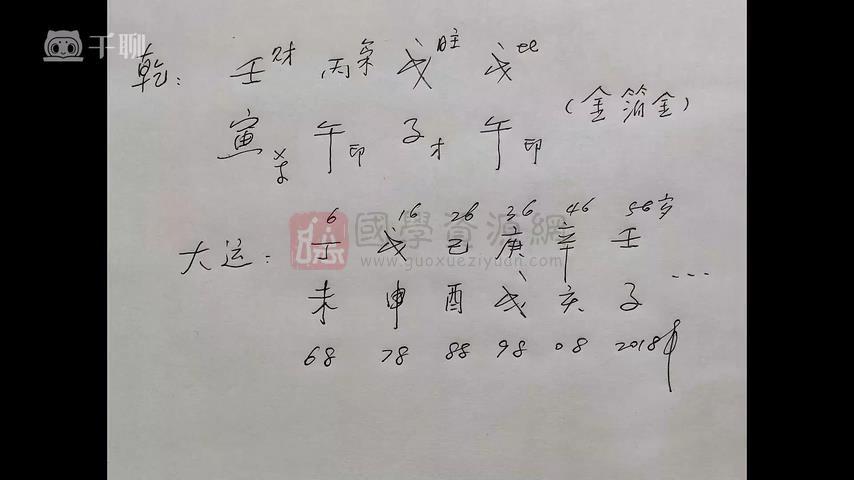 千聊
乾: 壬财 丙枭 戊日主 戊比
(金箔金)
寅杀 午印 子才 午印
6 16 26 36 46 56岁
國學資源網
大运: 丁 戊 己 庚 辛 壬
www.guoxueziyuan.com
未 申 酉 戌 亥 子 ...
68 78 88 98 08 2018